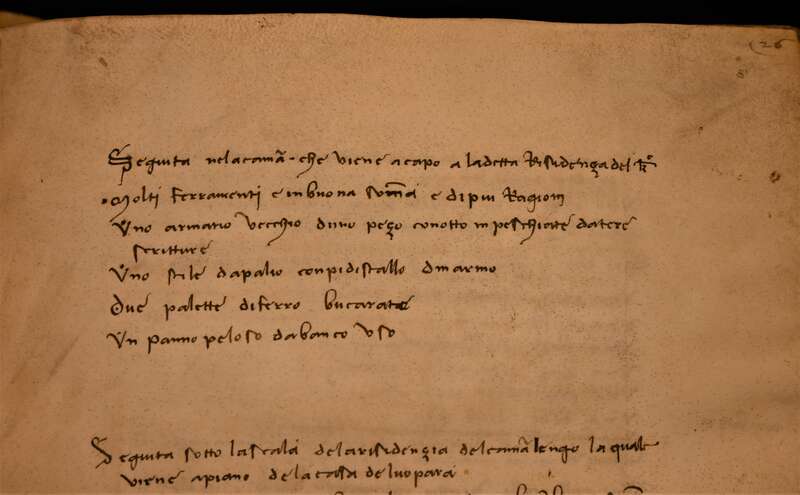 26
Seguita nelacamã che viene acapo a ladetta Residenza del
Molti ferramenti e inbuona soma e dipiu Ragioni
Uno armario vecchio duno pezo conotto inpeschiate datere
scritture
Uno stile dapalio conpidistallo dmarmo
Due palette diferro bucarate
Un panno peloso dabanco uso
Seguita sotto lascala delarisidenzia delcamãlengo la quale
viene apiano dela casa deluopara